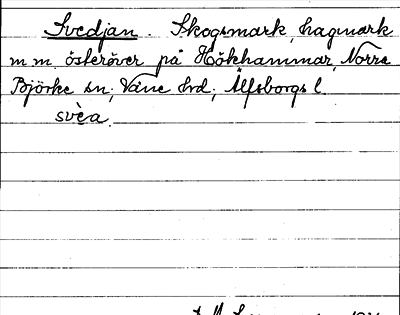 Svedjan. Skogsmark, hagmark
m m. österöver på Hökhammar, Norra
Björke sn; Väne hd; Älfsborgs l.
svèa.